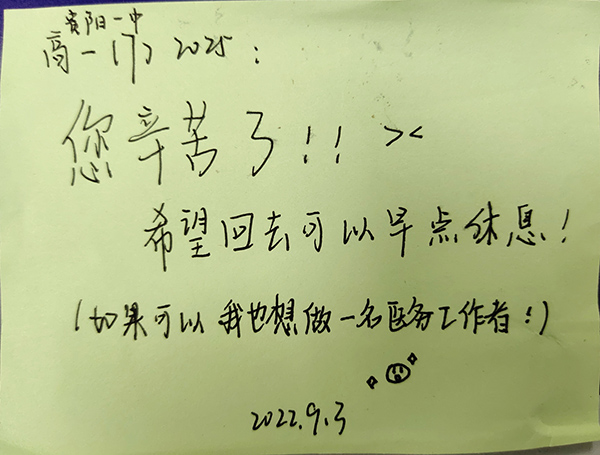 宾阳一中
高一(17) 2025:
您辛苦了!! ><
希望回去可以早点休息!
(如果可以我也想做一名医务工作者!)
2022.9.3